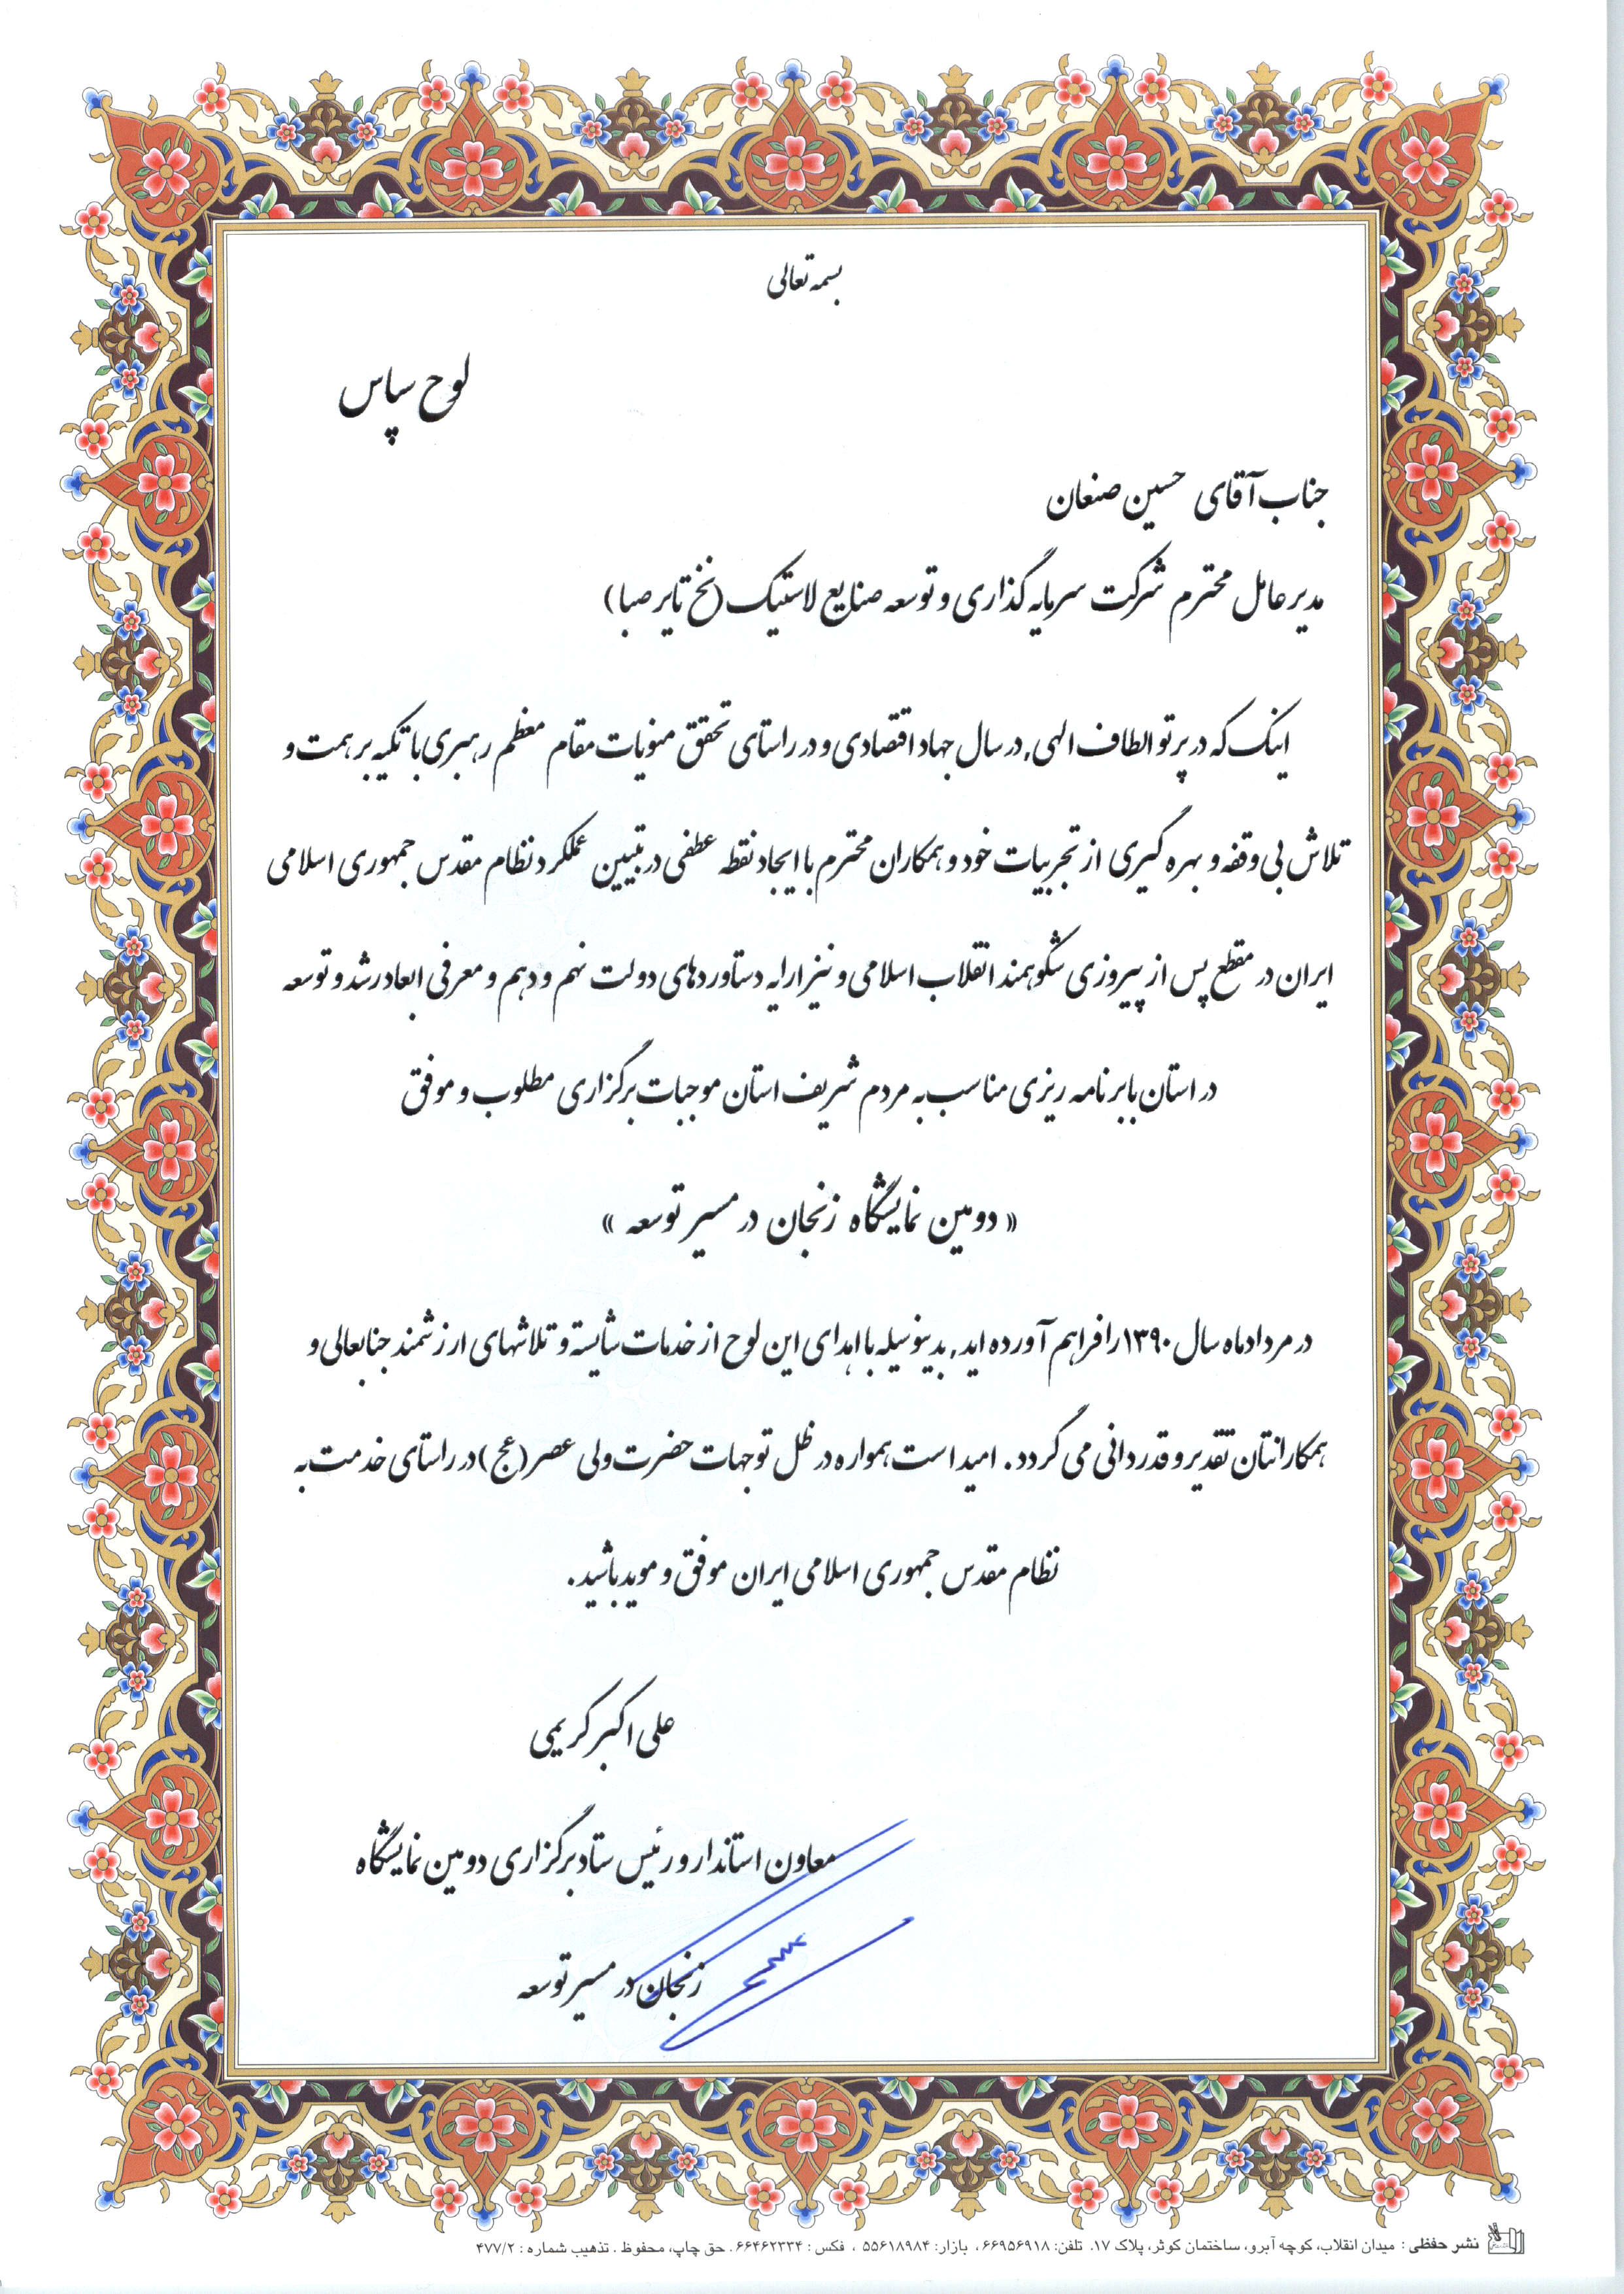 بسمه تعالی
لوح سپاس
جناب آقای حسین صنعان
مدیر عامل محترم شرکت سرمایه گذاری و توسعه صنایع لاستیک (نخ تایر صبا)
اینک که در پرتو الطاف الهی, در سال جهاد اقتصادی و در راستای تحقق منویات مقام معظم رهبری با تکیه بر همت و
تلاش بی وقفه و بهره گیری از تجربیات خود و همکاران محترم با ایجاد نقطه عطفی در تبیین عملکرد نظام مقدس جمهوری اسلامی
ایران در مقطع پس از پیروزی شکوهمند انقلاب اسلامی و نیز ارایه دستاوردهای دولت نهم و دهم و معرفی ابعاد رشد و توسعه
در استان با برنامه ریزی مناسب به مردم شریف استان موجبات برگزاری مطلوب و موفق
« دومین نمایشگاه زنجان در مسیر توسعه »
در مرداد ماه سال ۱۳۹۰ را فراهم آورده اید, بدینوسیله با اهدای این لوح از خدمات شایسته و تلاشهای ارزشمند جنابعالی و
همکارانتان تقدیر و قدردانی می گردد. امید است همواره در ظل توجهات حضرت ولی عصر (عج) در راستای خدمت به
نظام مقدس جمهوری اسلامی ایران موفق و موید باشید.
علی اکبر کریمی
معاون استاندار و رئیس ستاد برگزاری دومین نمایشگاه
زنجان در مسیر توسعه
نشر حفظی : میدان انقلاب، کوچه آبرو، ساختمان کوثر، پلاک ۱۷. تلفن: ۶۶۹۵۶۹۱۸، بازار: ۵۵۶۱۸۹۸۴ ، فکس : ۶۶۴۶۲۳۳۴ . حق چاپ، محفوظ . تذهیب شماره : ۴۷۷/۲